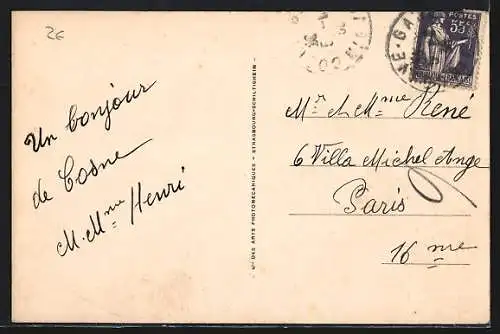 2€
Un bonjour
de Cosne
M. Mme Henri
Mon DES ARTS PHOTOMECANIQUES - STRASBOURG-SCHILTIGHEIM -
POSTES
55c
Mr et Mme René
6 Villa Michel Ange
Paris
16 me